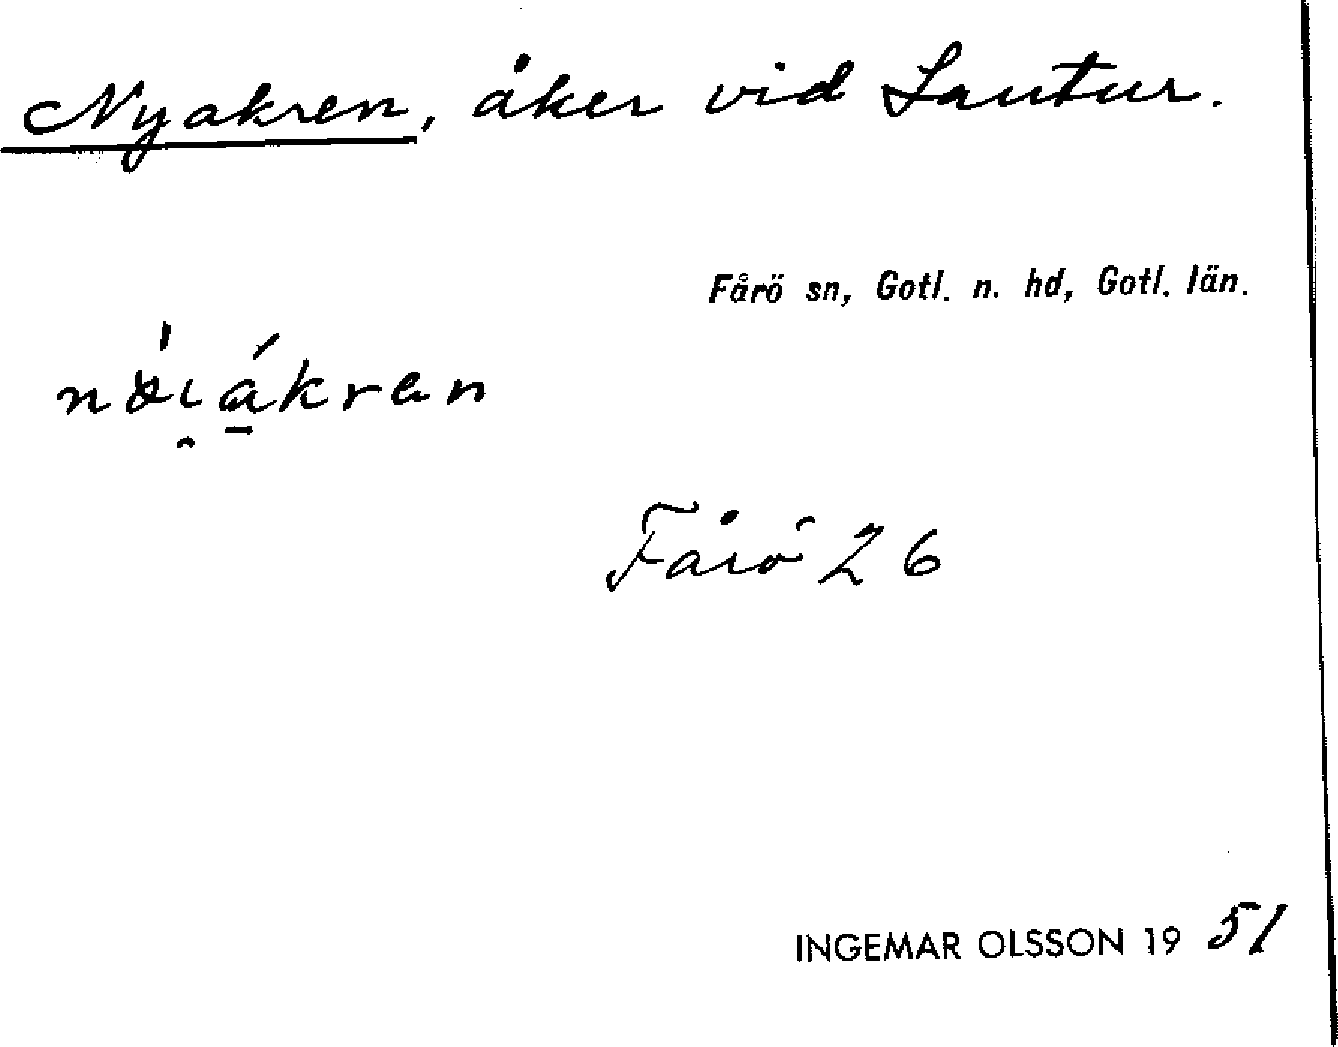 Nyakren, åker vid Lautur.
Fårö sn, Gotl. n. hd, Gotl. län.
Fårö 26
INGEMAR OLSSON 19 51